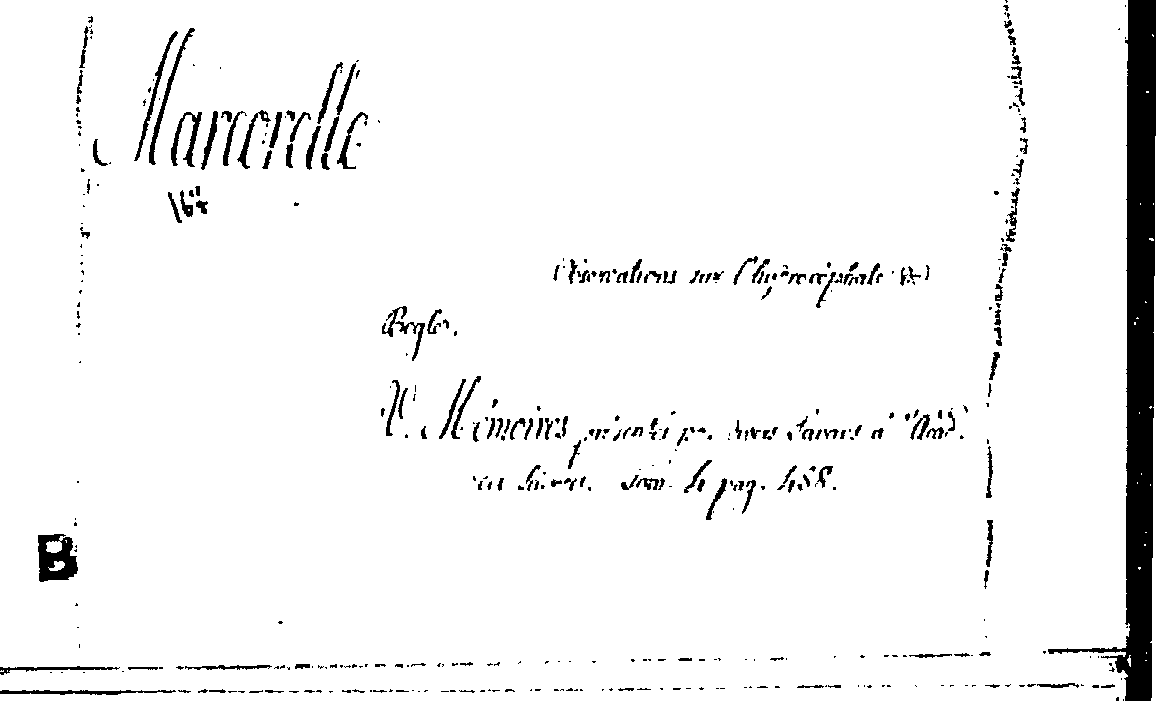 Marcorelle
Observations sur l'hydrocéphale
V. Mémoires présentés par divers Savans à l'Acad.
des Sciences. Tom. 4 pag. 458.
B